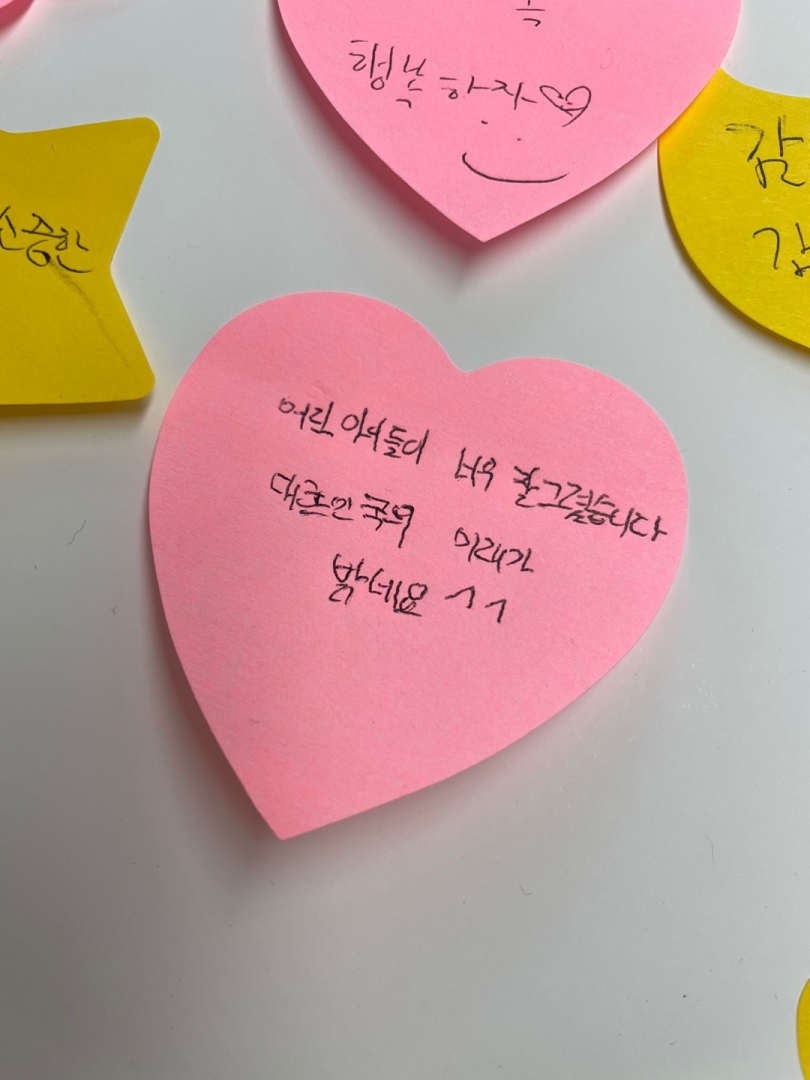 행복하자♡
신중한
갈
어린 아이들이 너무 잘그렸습니다
대한민국의 미래가
밝네요 ^^